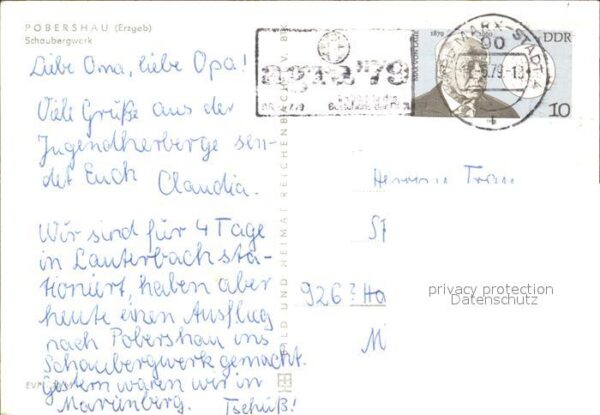 POBERSHAU (Erzgeb)
Schaubergwerk
Liebe Oma, liebe Opa!
Viele Grüße aus der
Jugendherberge sen-
det Euch
Claudia.
Wir sind für 4 Tage
in Lauterbach sta-
tioniert, haben aber
heute einen Ausflug
nach Pobershau ins
Schaubergwerk gemacht.
Gestern waren wir in
Marienberg. Tschüß!
BILD UND HEIMAT REICHENBACH I. V.
agra '79
MARX-STADT 4
90
79-13
1879
DDR
10
Herrn u. Frau
St
926
Ha
M
privacy protection
Datenschutz